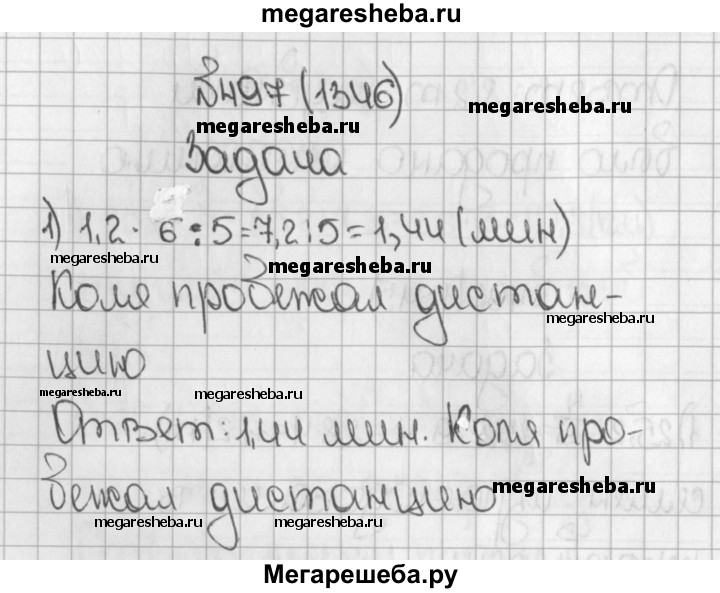 megaresheba.ru
№497 (1346)
megaresheba.ru
megaresheba.ru
Задача
1) 1,2 · 6 : 5 = 7,2 : 5 = 1,44 (мин)
megaresheba.ru
megaresheba.ru
Коля пробежал дистан-
megaresheba.ru
цию
megaresheba.ru
megaresheba.ru
Ответ: 1,44 мин. Коля про-
бежал дистанцию
megaresheba.ru
megaresheba.ru
megaresheba.ru
Мегарешеба.ру